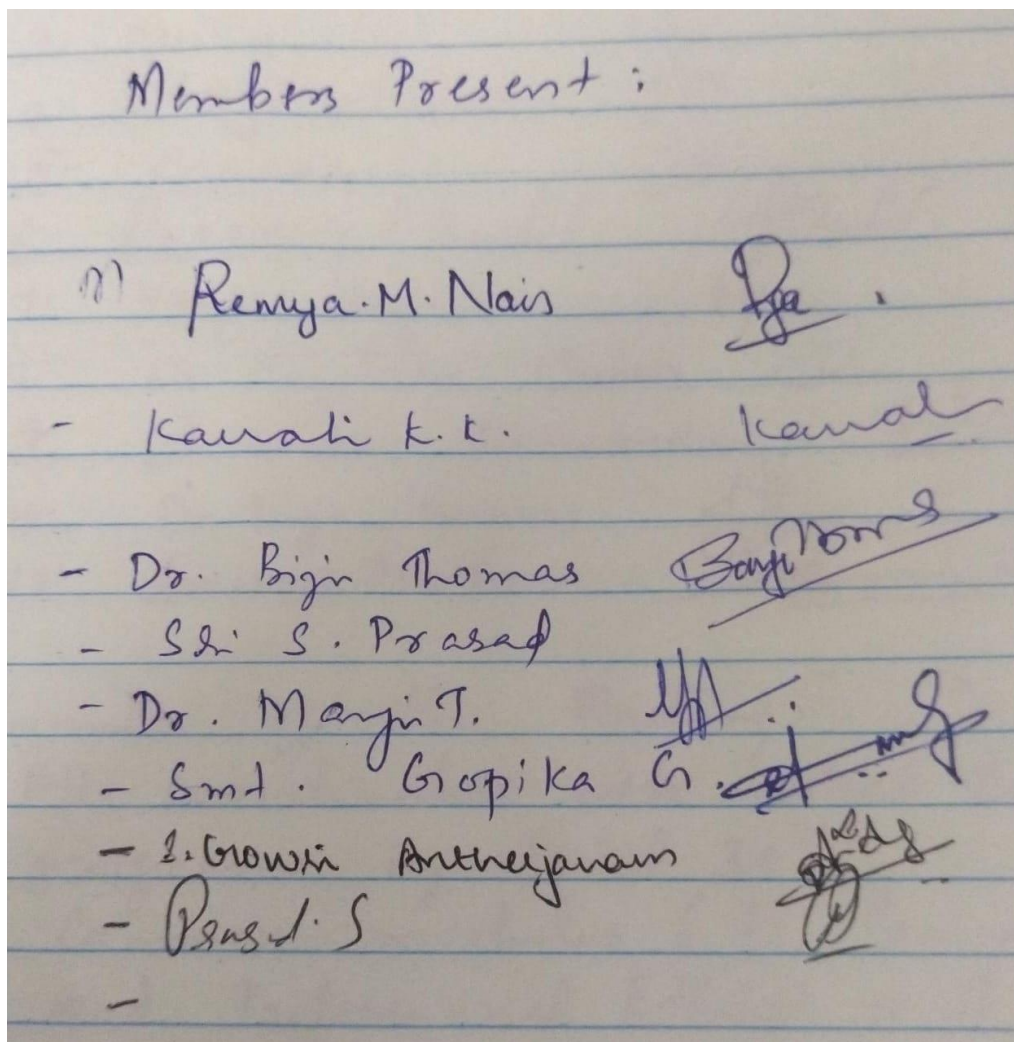 Members Present :
1) Remya . M . Nair
- Kairali k . k . Kairali
- Dr. Bijin Thomas
- Shri S . Prasad
- Dr . Manju T.
- Smt . Gopika G .
- S. Gowri Antherjanam
- Prasad . S
-